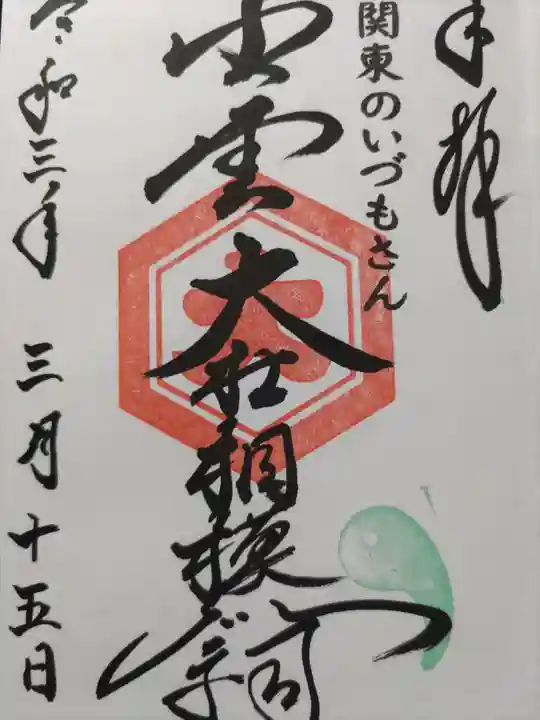 奉拝
関東のいづもさん
出雲大社相模分祠
令和三年 三月十五日